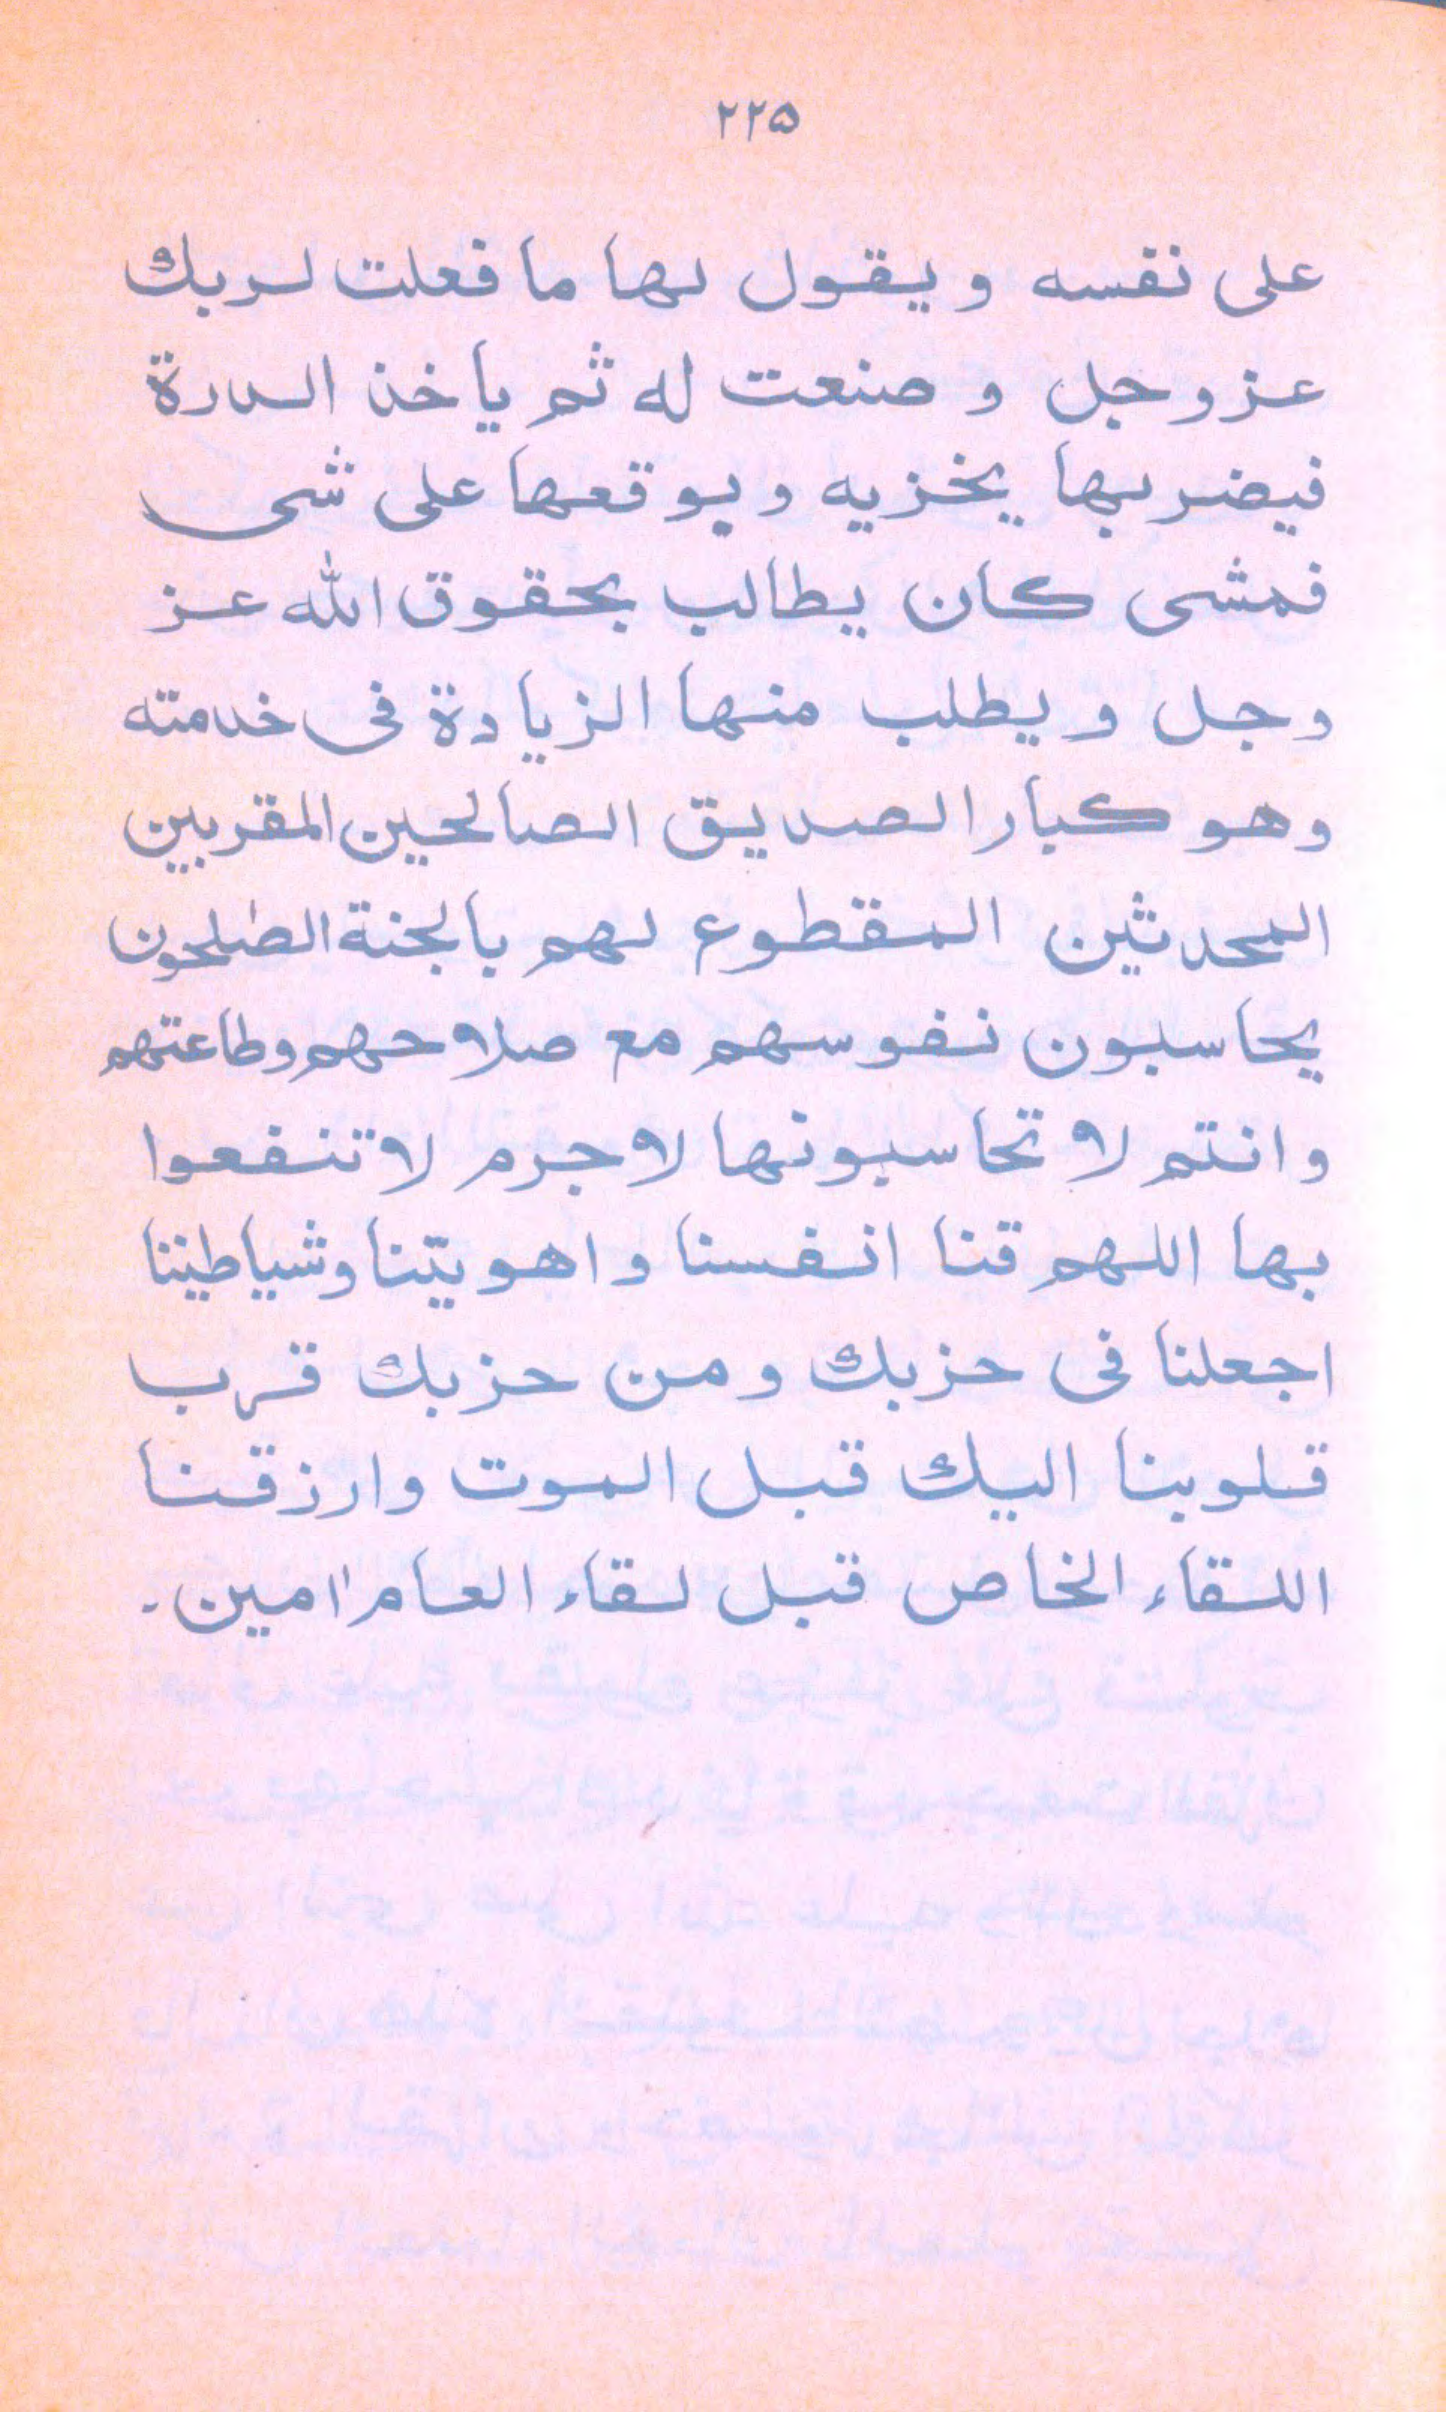 ۲۲۵
على نفسه ويقول لها ما فعلت لربك
عز وجل وصنعت له ثم يأخذ الدرة
فيضربها يخزيه ويوقعها على شى
فمشى كان يطالب بحقوق الله عز
وجل ويطلب منها الزيادة فى خدمته
وهو كبار الصديق الصالحين المقربين
المحدثين المقطوع لهم بالجنة الصلحون
يحاسبون نفوسهم مع صلاحهم وطاعتهم
وانتم لا تحاسبونها لا جرم لا تنفعوا
بها اللهم قنا انفسنا واهويتنا وشياطيننا
اجعلنا فى حزبك ومن حزبك قرب
قلوبنا اليك قبل الموت وارزقنا
اللقاء الخاص قبل لقاء العام امين.